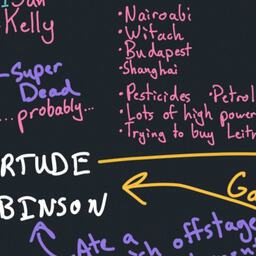 Kelly
-Super
Dead
...probably...
•Nairoabi
•Witach
•Budapest
•Shanghai
•Pesticides •Petrol
•Lots of high power
•Trying to buy Leitn
RTUDE
BINSON
Go
Ate a
offstage